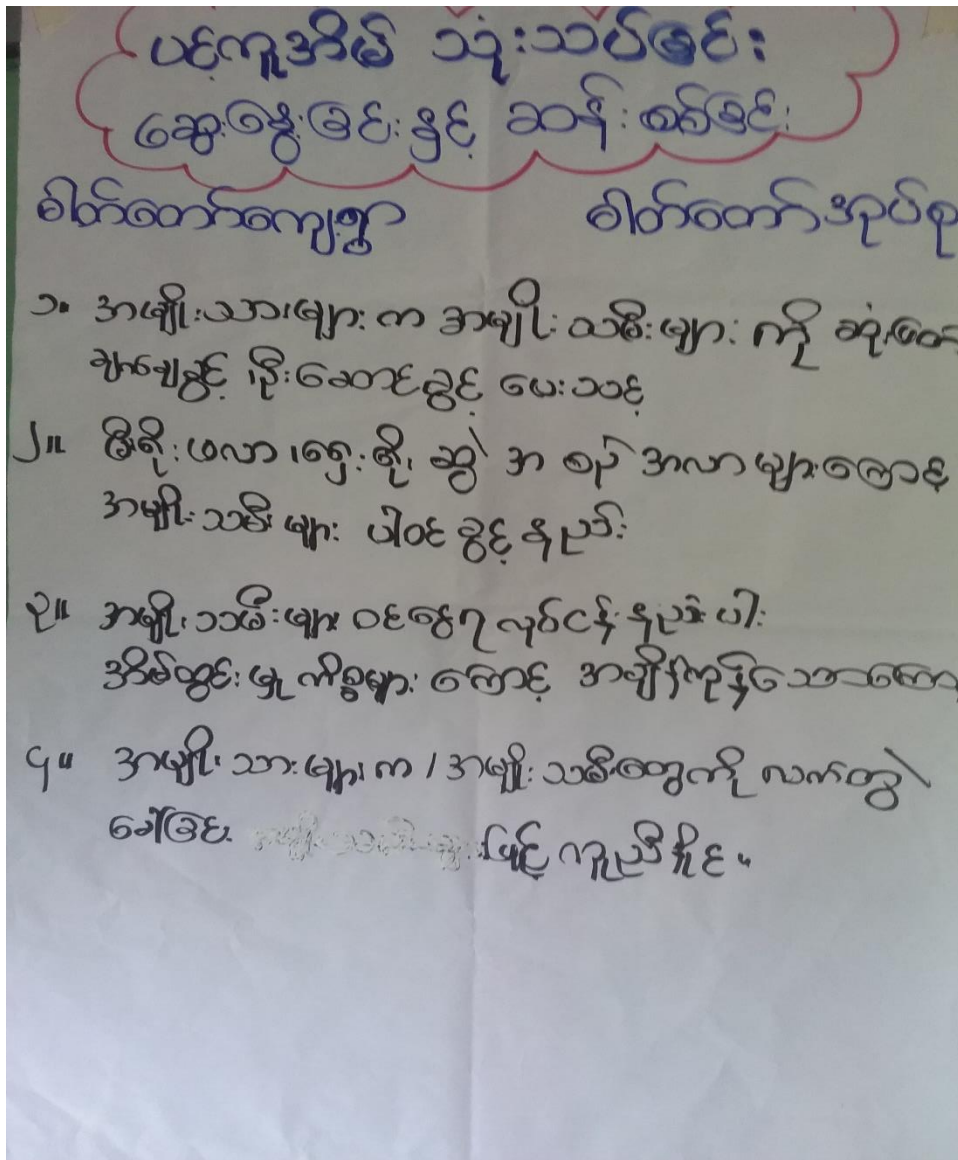 ပင့်ကူအိမ် သုံးသပ်ခြင်း
ဆွေးနွေးခြင်းနှင့် ဆန်းစစ်ခြင်း
ဓါတ်တော်ကျေးရွာ ဓါတ်တော်အုပ်စု
၁။ အမျိုးသားများက အမျိုးသမီးများကို ဆုံးဖြတ်
ချမှတ်ခွင့် ဦးဆောင်ခွင့် ပေးသင့်
၂။ မိရိုးဖလာ ၊ရှေးရိုး ဆွဲ အစဉ်အလာများကြောင့်
အမျိုးသမီးများ ပါဝင်ခွင့်နည်း
၃။ အမျိုးသမီးများ ဝင်ငွေရ လုပ်ငန်းနည်းပါး
အိမ်တွင်းမှုကိစ္စများ ကြောင့် အချိန်ကုန်သော
၄။ အမျိုးသားများက ၊ အမျိုးသမီးတွေကို လက်တွဲ
ခေါ်ခြင်း ဖြင့် ကူညီနိုင်။